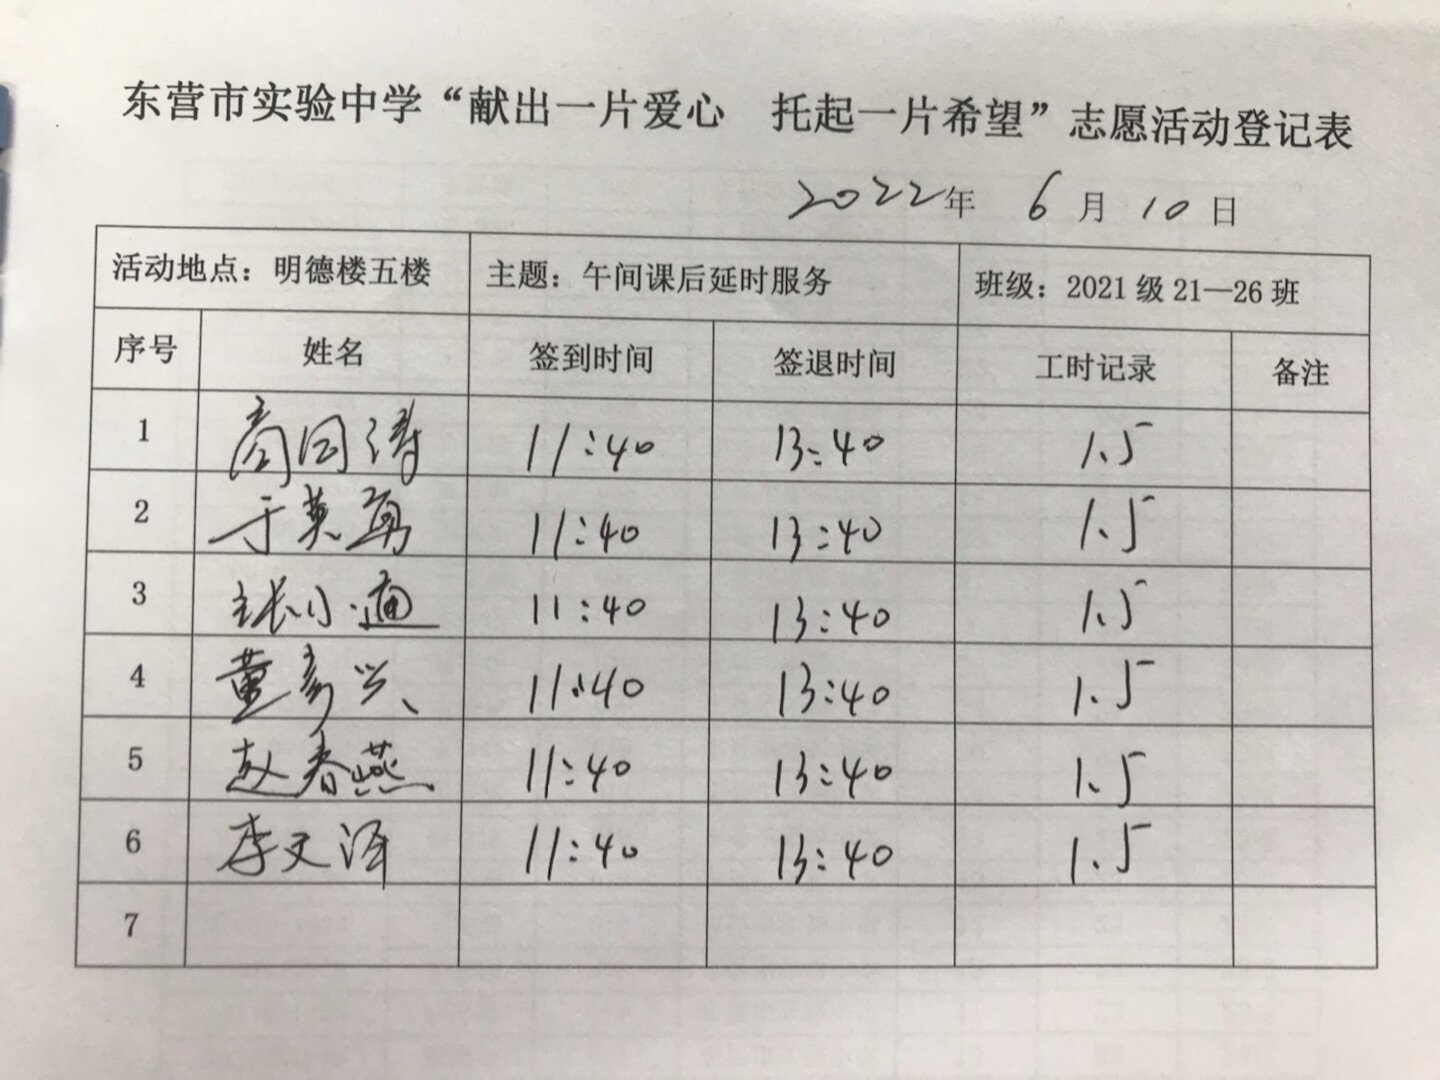 东营市实验中学“献出一片爱心 托起一片希望”志愿活动登记表
2022年 6月 10日
活动地点：明德楼五楼 主题：午间课后延时服务 班级：2021级21—26班
序号 姓名 签到时间 签退时间 工时记录 备注
1 商国涛 11:40 13:40 1.5
2 于英勇 11:40 13:40 1.5
3 张小通 11:40 13:40 1.5
4 董彦兴 11:40 13:40 1.5
5 赵春燕 11:40 13:40 1.5
6 李文泽 11:40 13:40 1.5
7